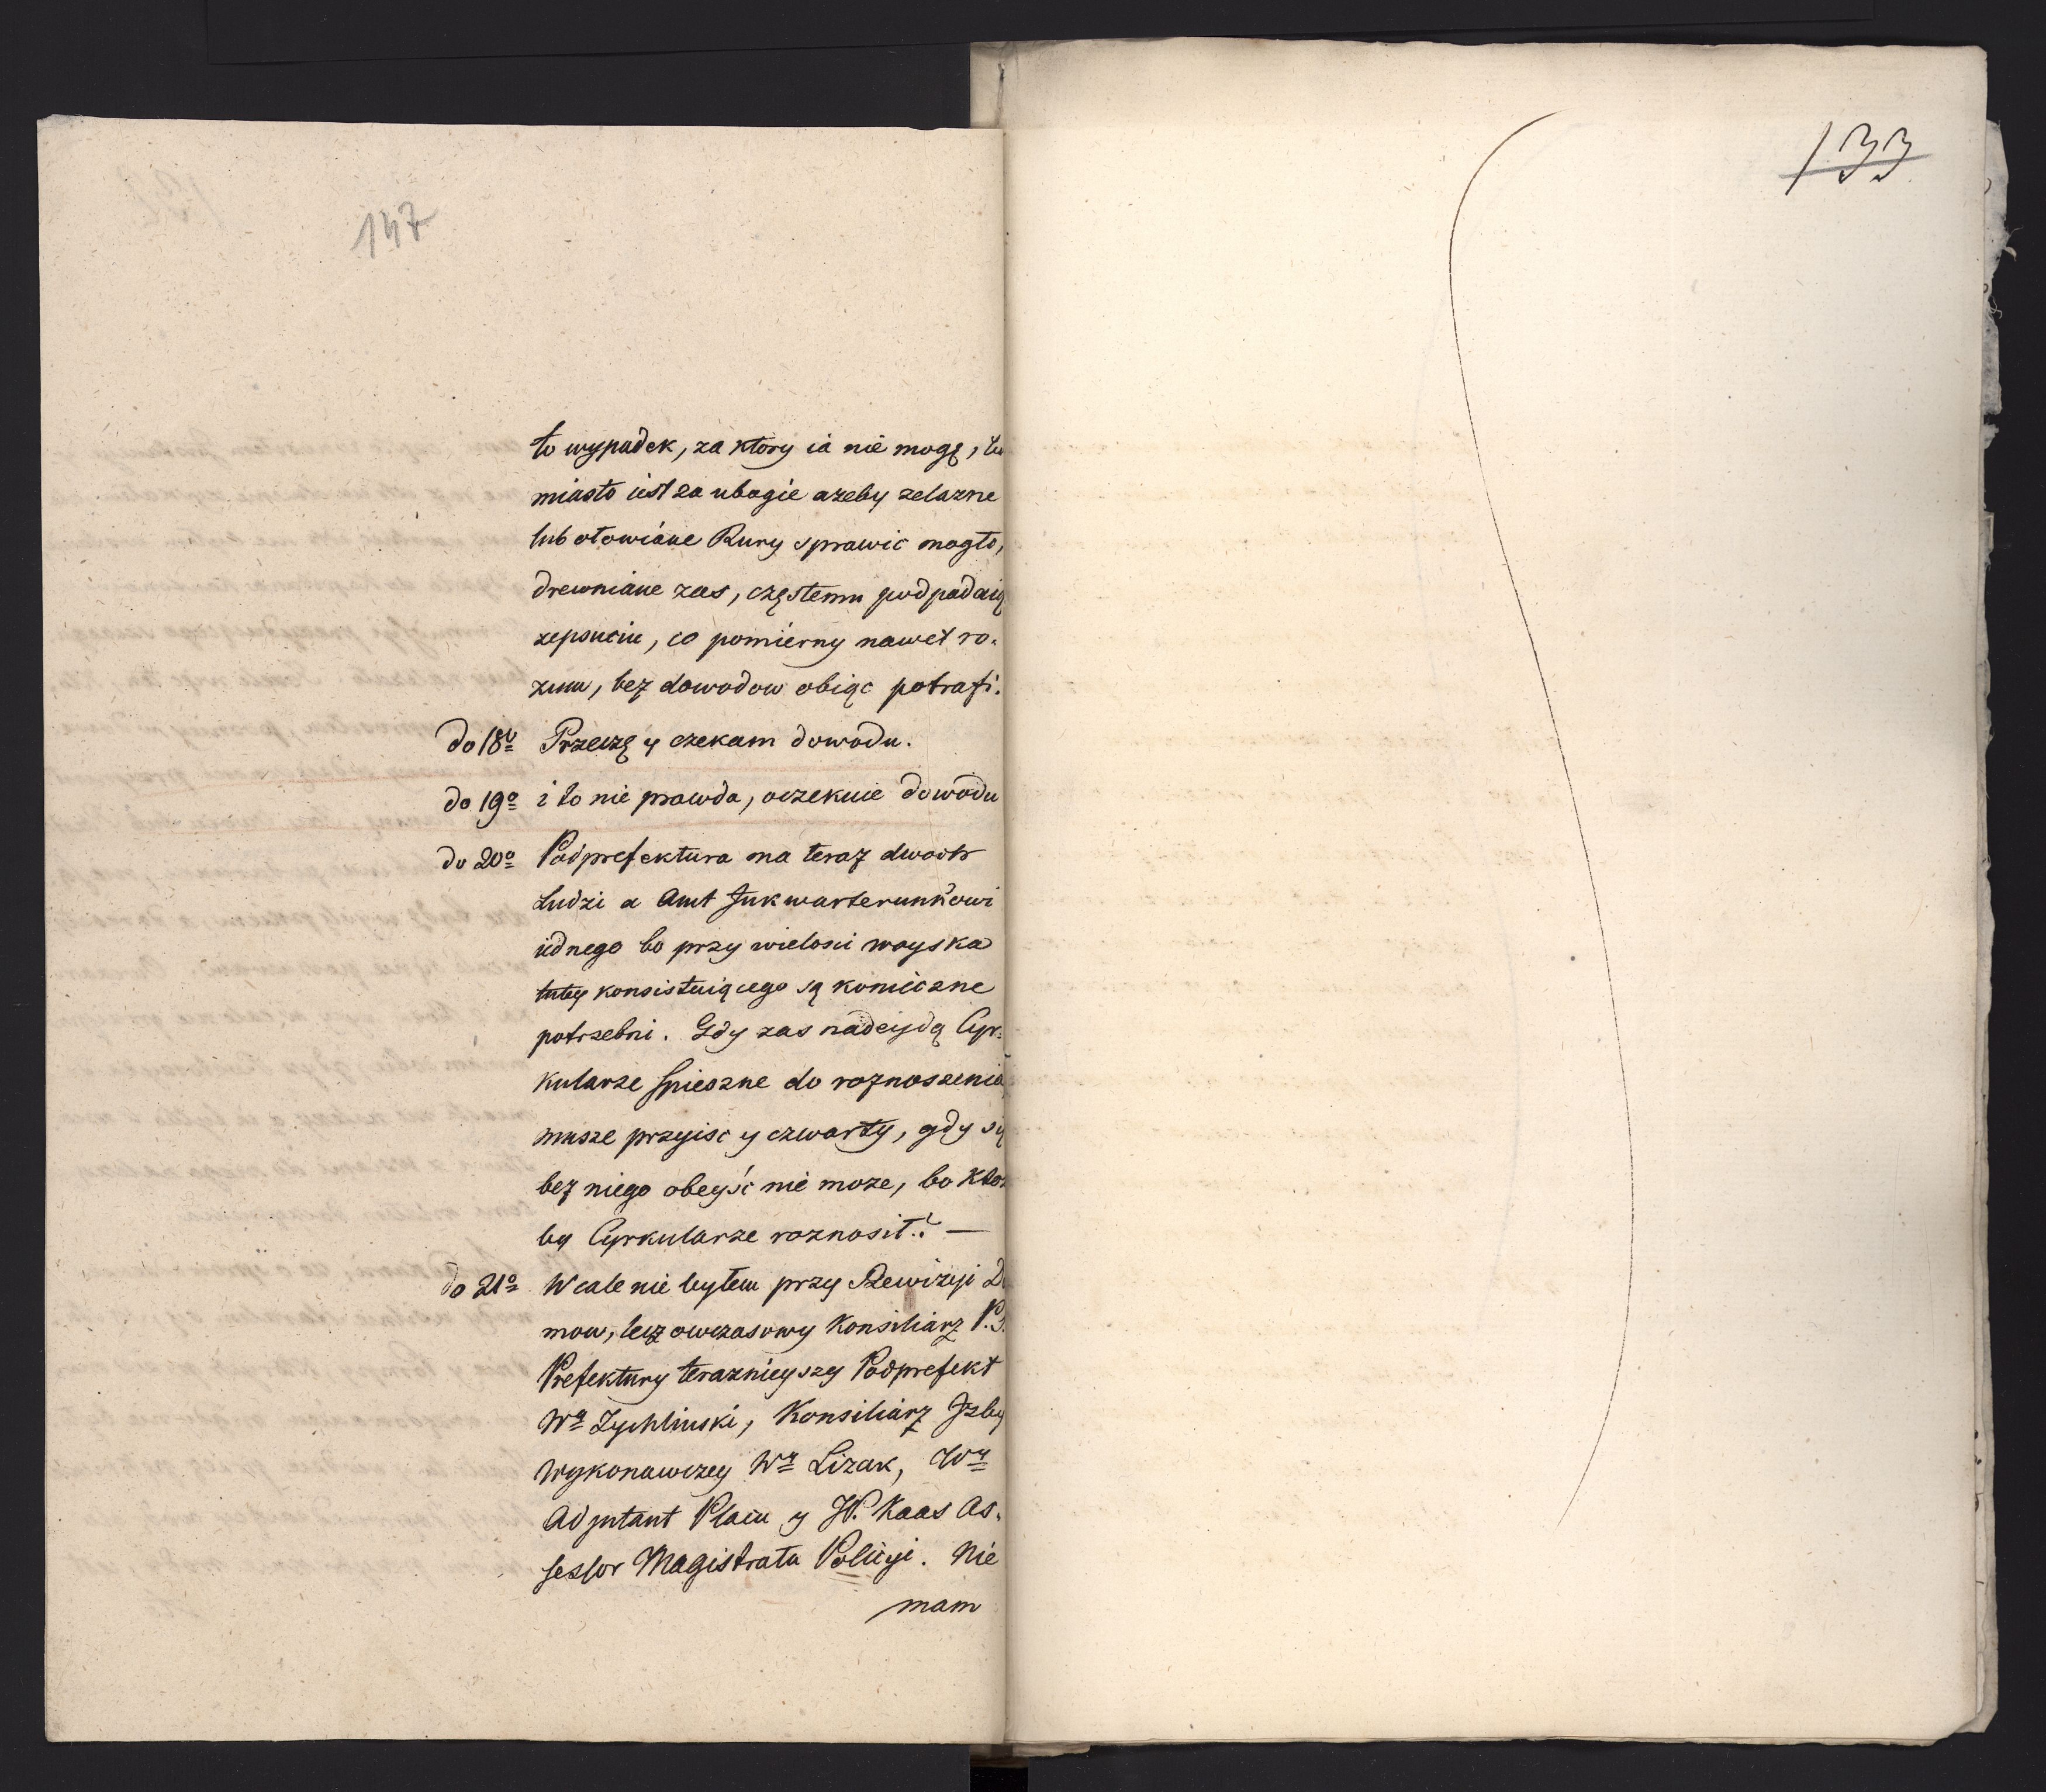 147
to wypadek, za ktory ia nie mogę, tu
miasto iest za ubogie azeby zelazne
lub ołowiane Rury sprawic mogło,
drewniane zas, częstemu podpadaią
zepsuciu, co pomierny nawet ro-
zum, bez dowodow obiąc potrafi.
do 18o Przeczę y czekam dowodu.
do 19o i to nie prawda, oczekuie dowodu
do 20o Podprefektura ma teraz dwoch
Ludzi a Amt Inkwarterunkowi
iednego bo przy wielosci woyska
tutey konsistuiącego są konieczne
potrzebni. Gdy zas nadeydą Cyr-
kularze spieszne do roznoszenia
musze przyisc y czwarty, gdy się
bez niego obeyść nie moze, bo ktoz
by Cyrkularze roznosił? —
do 21o Wcale nie byłem przy Rewizyi Do
mow, lecz owczasowy Konsiliarz P.
Prefektury teraznieyszy Podprefekt
Wy Zychlinski, Konsiliarz Izby
Wykonawczey Wy Lizak, Wy
Adjutant Placu y JP. Kaas As-
sessor Magistratu Policyi. Nie
mam
133